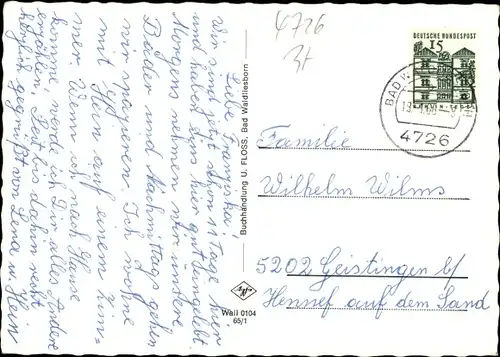 4726
Liebe Franziska!
Wir sind jetzt schon 11 Tage hier
und haben uns hier gut eingelebt.
Morgens nehmen wir unsere
Bäder und Nachmittags gehen
wir spazieren. Ich wohne
mit Tyff auf einem Zim=
mer. Wenn ich nach Hause
komme, werde ich Dir alles Andere
erzählen. Seit bis dahin recht
herzlich gegrüßt von Lena u. Hein
Buchhandlung U. FLOSS, Bad Waldliesborn
Wall 0104
65/1
DEUTSCHE BUNDESPOST
15
BAD W
4726
Familie
Wilhelm Wilms
5202 Geistingen b/
Hennef auf dem Sand